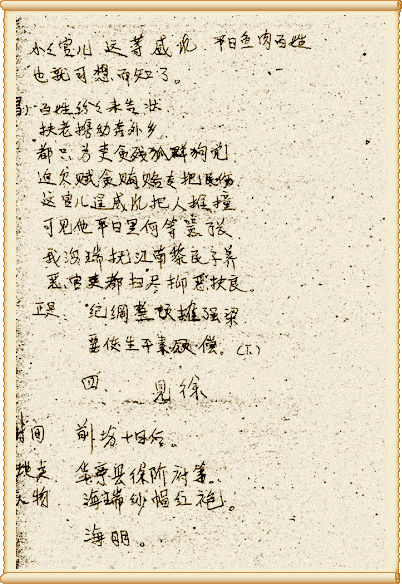 小小官儿这等威风 平日鱼肉百姓
也就可想而知了。
百姓纷纷来告状
扶老携幼奔外乡
都只为吏贪残狐群狗党
这官儿逞威风把人推撞
可见他平日里何等嚣张
我海瑞抚江南黎民予养
恶官吏都扫尽抑恶扶良。
纪纲整顿摧强梁
要使生平素愿偿。(下)
四、见徐
时间 前场十日后。
地点 华亭县徐阶府第。
人物 海瑞纱帽红袍。
海明。